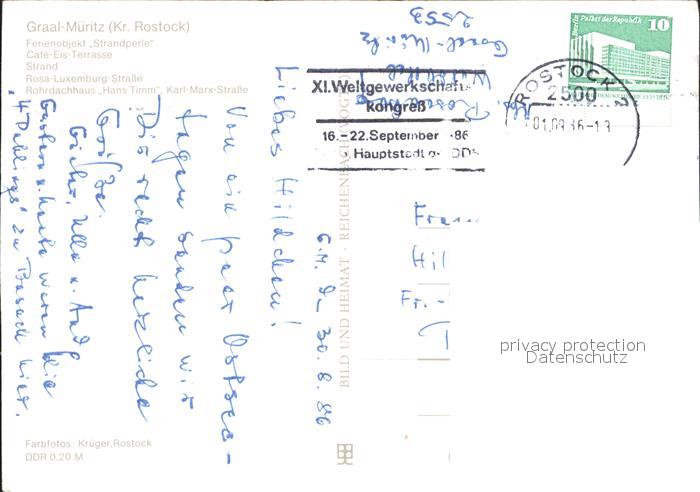 Graal-Müritz (Kr. Rostock)
Ferienobjekt „Strandperle"
Café-Eis-Terrasse
Strand
Rosa-Luxemburg-Straße
Rohrdachhaus „Hans Timm", Karl-Marx-Straße
Graal-Müritz
2553
XI. Weltgewerkschafts-
kongreß
16.-22. September 86
Hauptstadt d. DDR
Berlin, Palast der Republik
10
ROSTOCK 2
2500
01.09.86-13
G.M. d. 30.8.86
Liebes Hildchen!
Von ein paar Ostsee-
tagen senden wir
Dir recht herzliche
Grüße.
Gestern u. heute waren die
zu Besuch hier.
BILD UND HEIMAT · REICHENBACH (VOGTL)
Hil
Fr.-
privacy protection
Datenschutz
Farbfotos: Krüger, Rostock
DDR 0,20 M